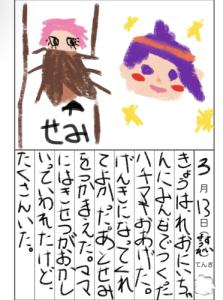 せみ
3月13日
てんき
きょうはれおにいちゃ
んに でつくた
ハチマキおあげた。
げんきになってくれ
てよかた。あとせみ
をつかまえた。ママ
にはきせつがおかし
いていわれたけど、
たくさんいた。